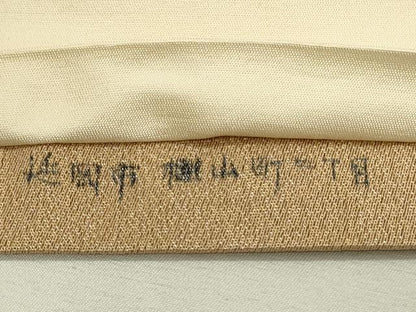 延岡市 山町 丁目